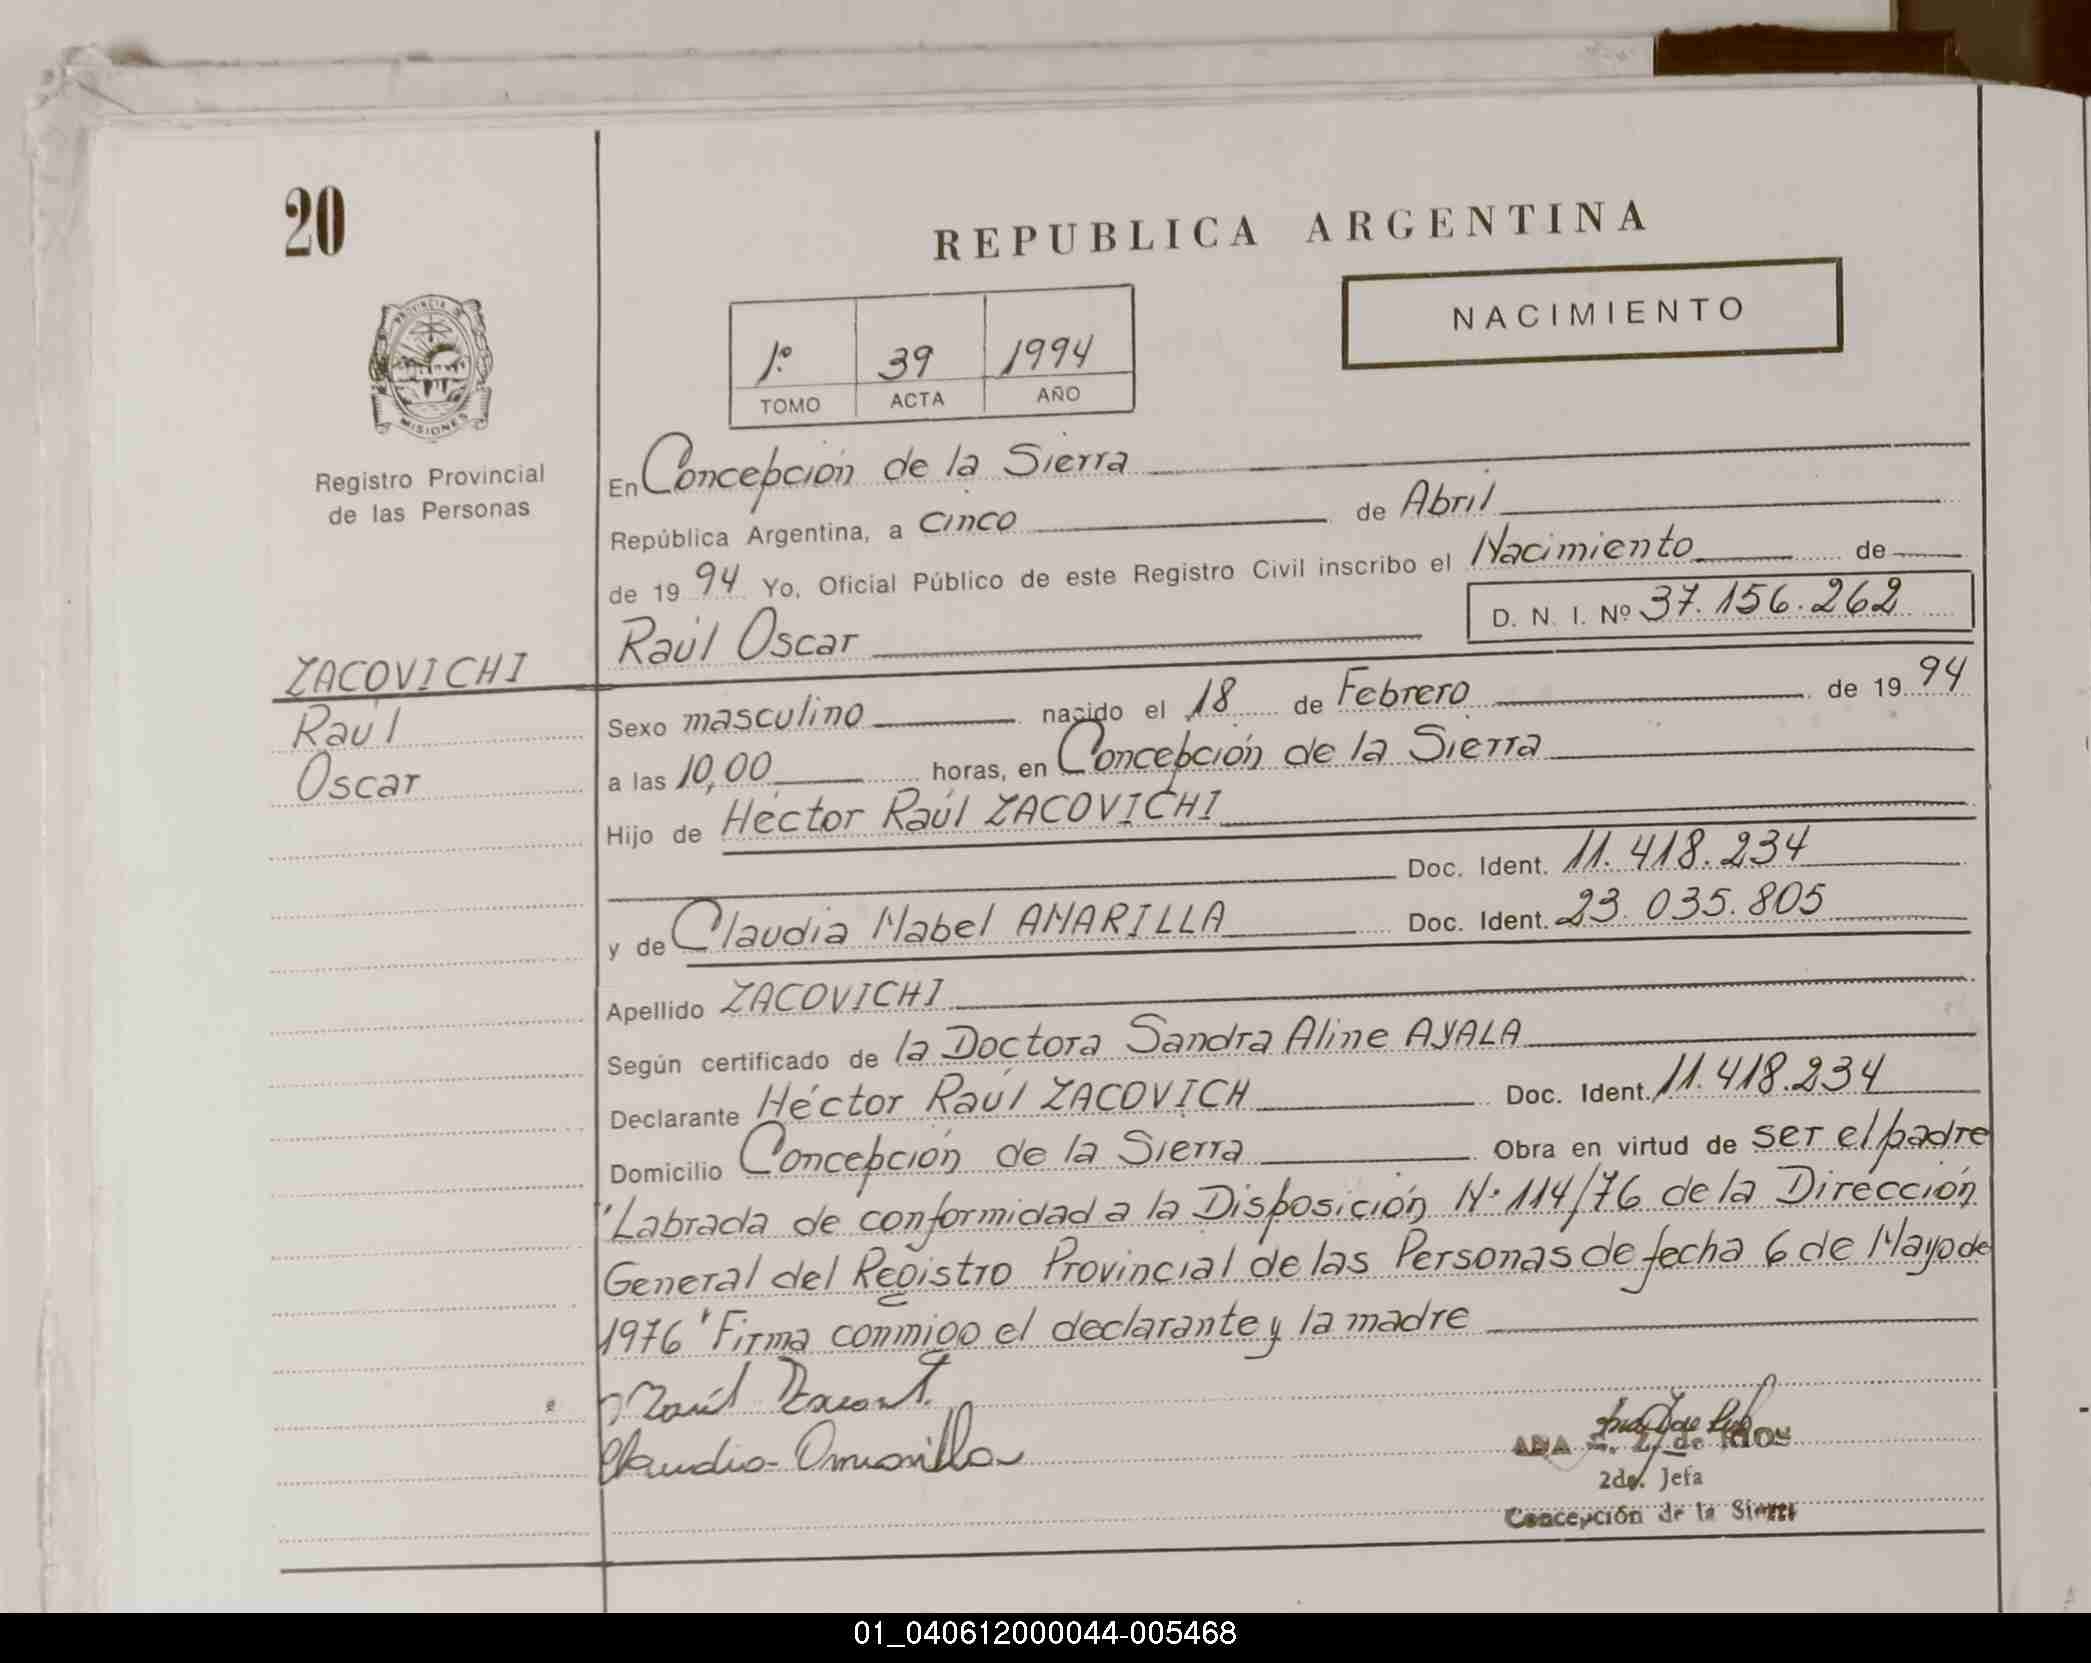 20
REPUBLICA ARGENTINA
NACIMIENTO
1º 39 1994
TOMO ACTA AÑO
PROVINCIA DE
MISIONES
Registro Provincial
de las Personas
En Concepción de la Sierra
República Argentina, a cinco de Abril
de 1994 Yo, Oficial Público de este Registro Civil inscribo el Nacimiento de
Raúl Oscar D. N. I. Nº 37.156.262
ZACOVICHI
Raúl
Oscar
Sexo masculino nacido el 18 de Febrero de 1994
a las 10,00 horas, en Concepción de la Sierra
Hijo de Héctor Raúl ZACOVICHI
Doc. Ident. 11.418.234
y de Claudia Mabel AMARILLA Doc. Ident. 23.035.805
Apellido ZACOVICHI
Según certificado de la Doctora Sandra Aline AYALA
Declarante Héctor Raúl ZACOVICH Doc. Ident. 11.418.234
Domicilio Concepción de la Sierra Obra en virtud de ser el padre
"Labrada de conformidad a la Disposición Nº 114/76 de la Dirección
General del Registro Provincial de las Personas de fecha 6 de Mayo de
1976" Firma conmigo el declarante y la madre
Claudia Amarilla
ANA de
2da. Jefa
Concepción de la Sierra
01_040612000044-005468